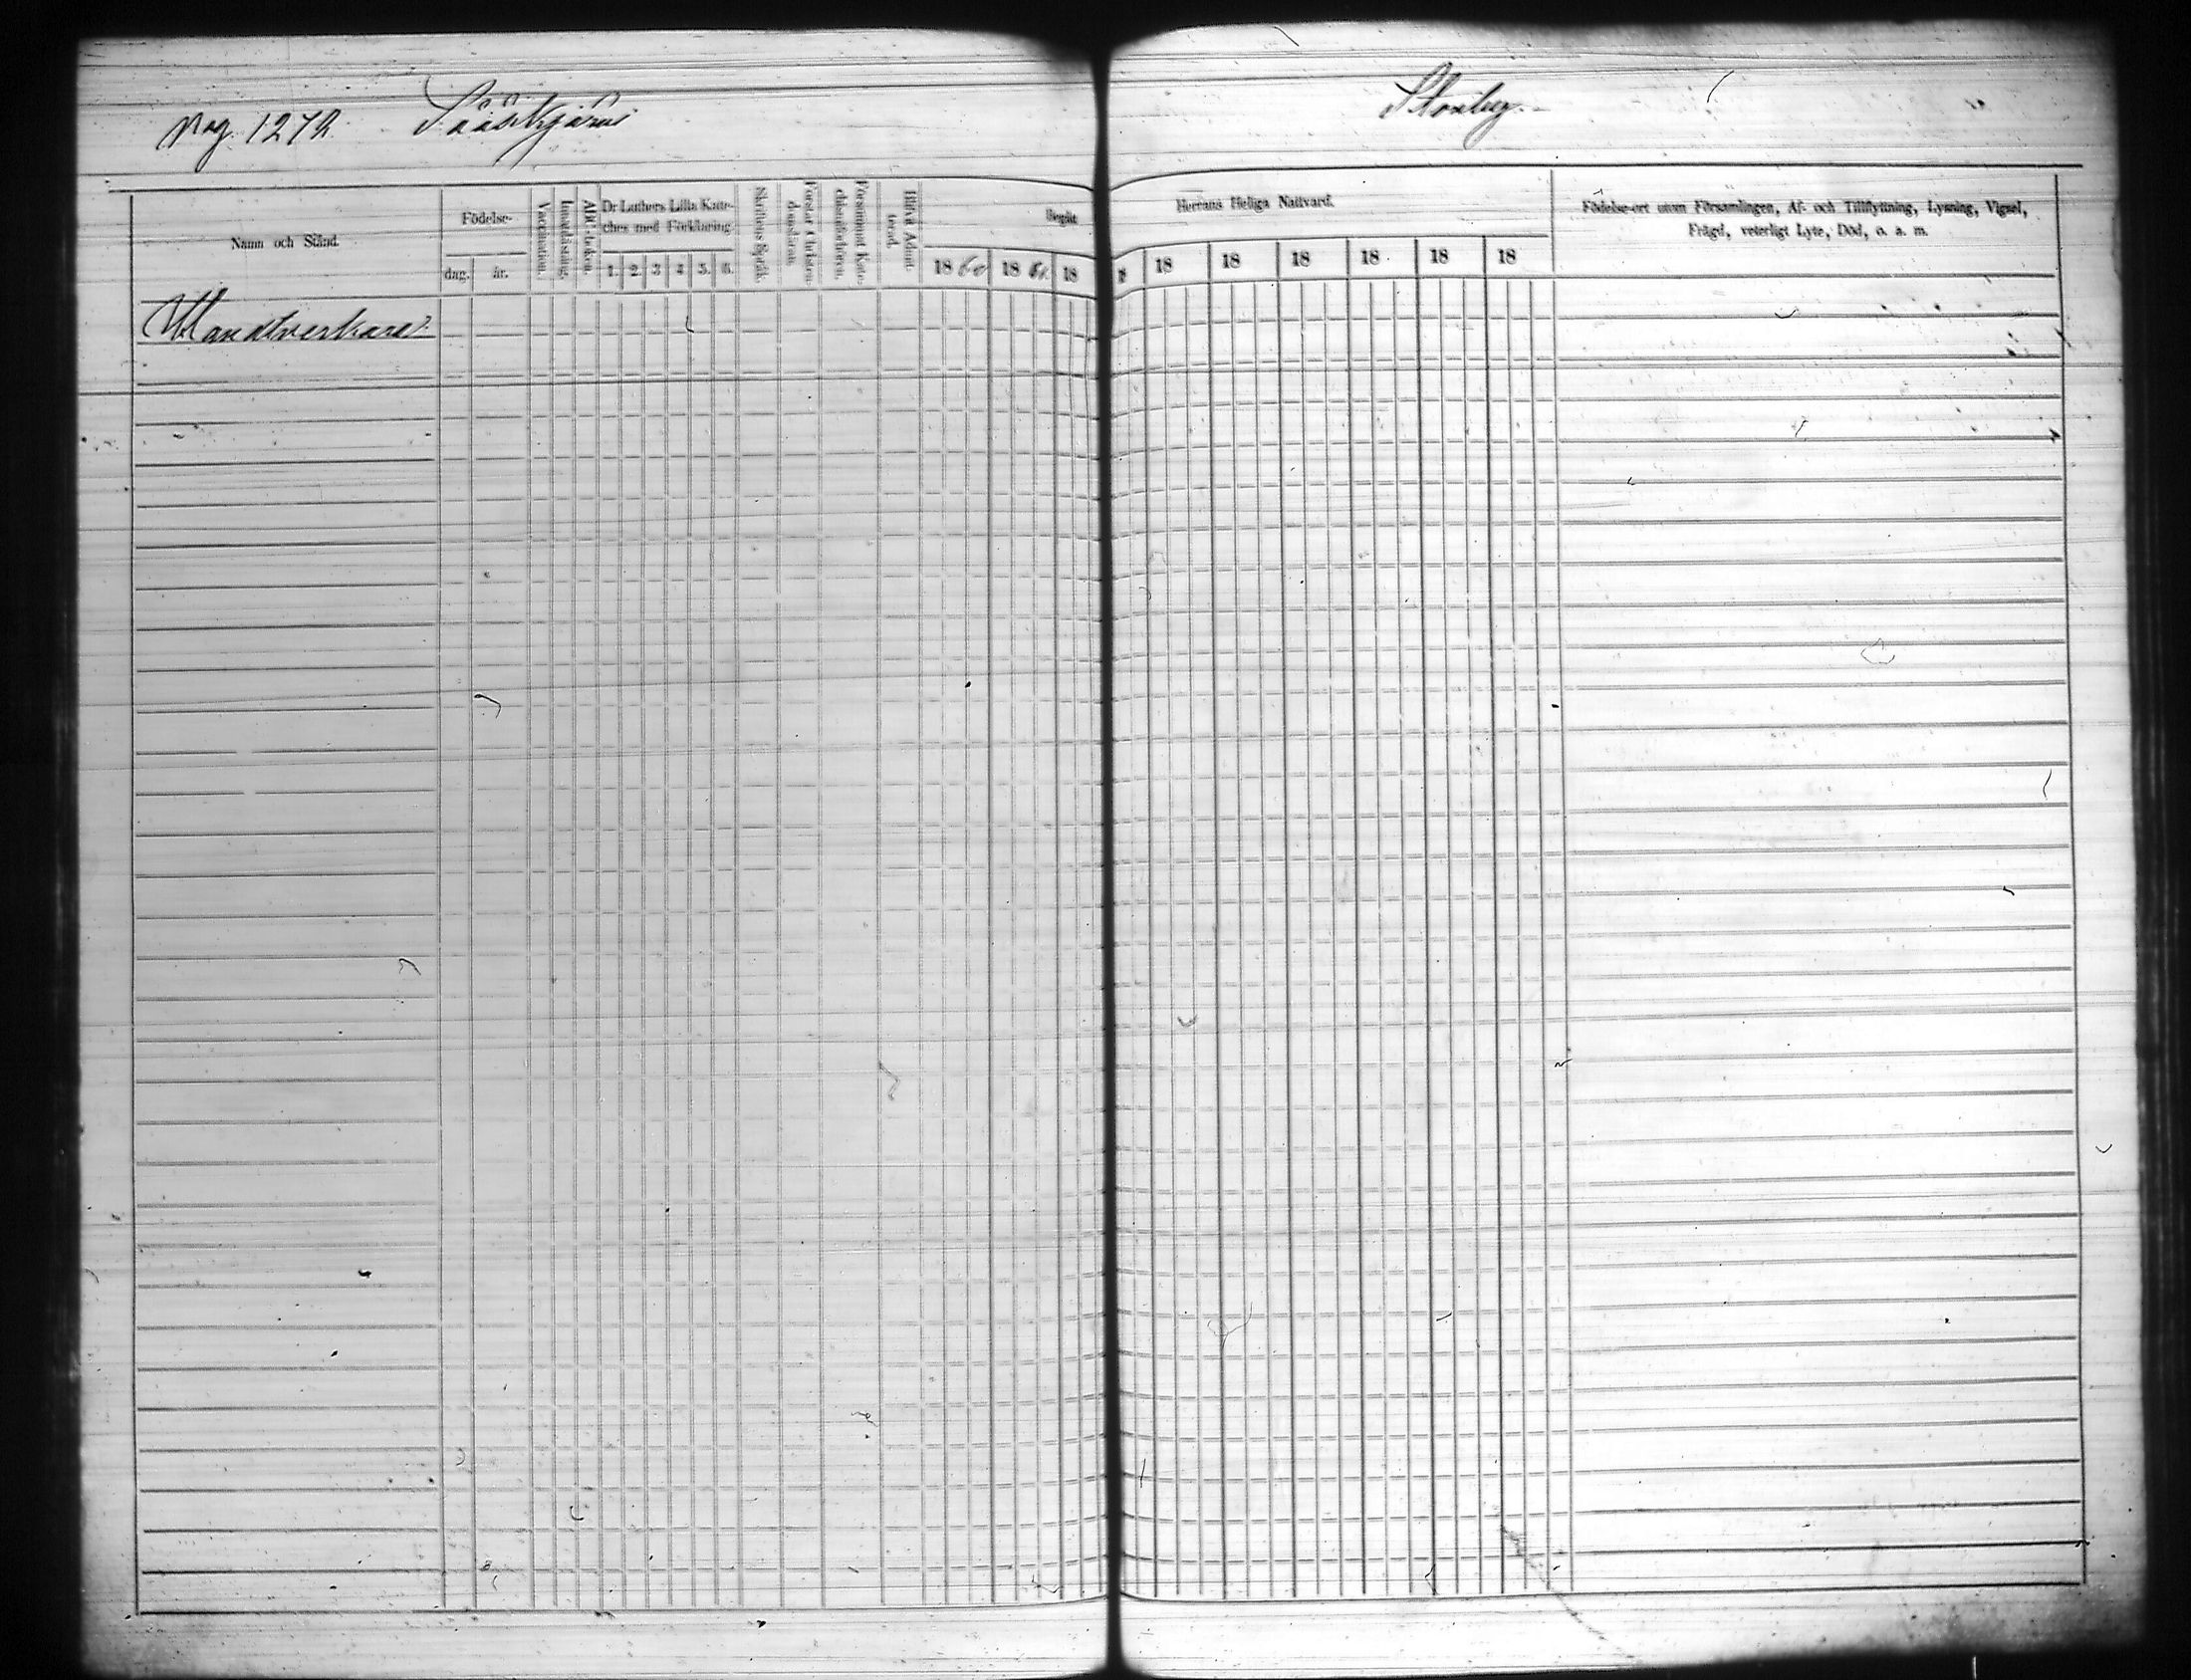 Pag. 1272 Sääskjärvi Storby.
Namn och Stånd.
Födelse-
dag. år.
Vaccination.
Innanläsning.
ABC-boken.
Dr Luthers Lilla Kate-
ches med Förklaring
1. 2. 3 4 5. 6.
Skriftens Språk.
Förstår Christen-
domsläran.
Försummat Kate-
chismiförhören.
Blifvit Admit-
terad.
Begått Herrans Heliga Nattvard.
18 60 18 61. 18 18 18 18 18 18 18
Födelse-ort utom Församlingen, Af- och Tillflyttning, Lysning, Vigsel,
Frägd, veterligt Lyte, Död, o. a. m.
Handtverkare